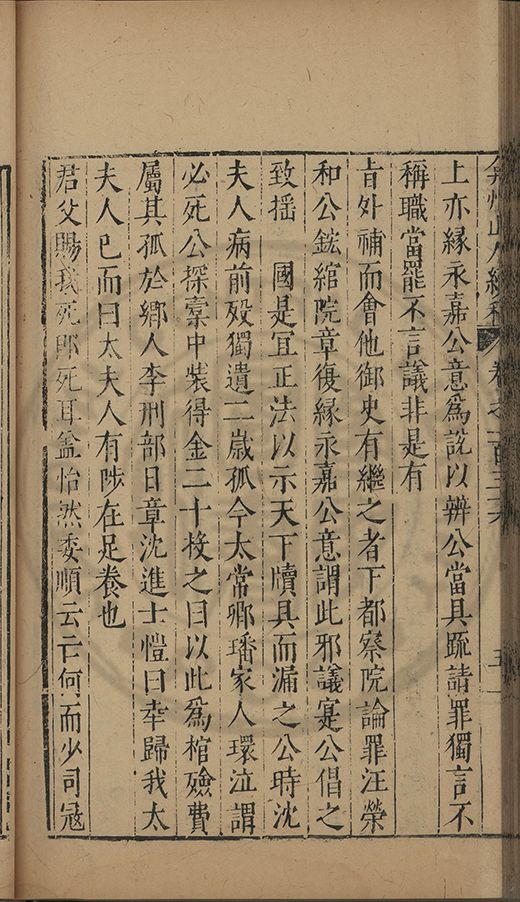 弇州山人續稿 卷之一百三十六 五
上亦緣永嘉公意爲說以辨公當具䟽請罪獨言不
稱職當罷不言議非是有
旨外補而會他御史有繼之者下都察院論罪汪榮
和公鋐綰院章復緣永嘉公意謂此邪議寔公倡之
致摇 國是宜正法以示天下牘具而漏之公時沈
夫人病前殁獨遺二歲孤今太常卿璠家人環泣謂
必死公探橐中裝得金二十授之曰以此爲棺殮費
屬其孤於鄉人李刑部日章沈進士愷曰幸歸我太
夫人已而曰太夫人有陟在足養也
君父賜我死即死耳盆怡然委順云亡何而少司冦